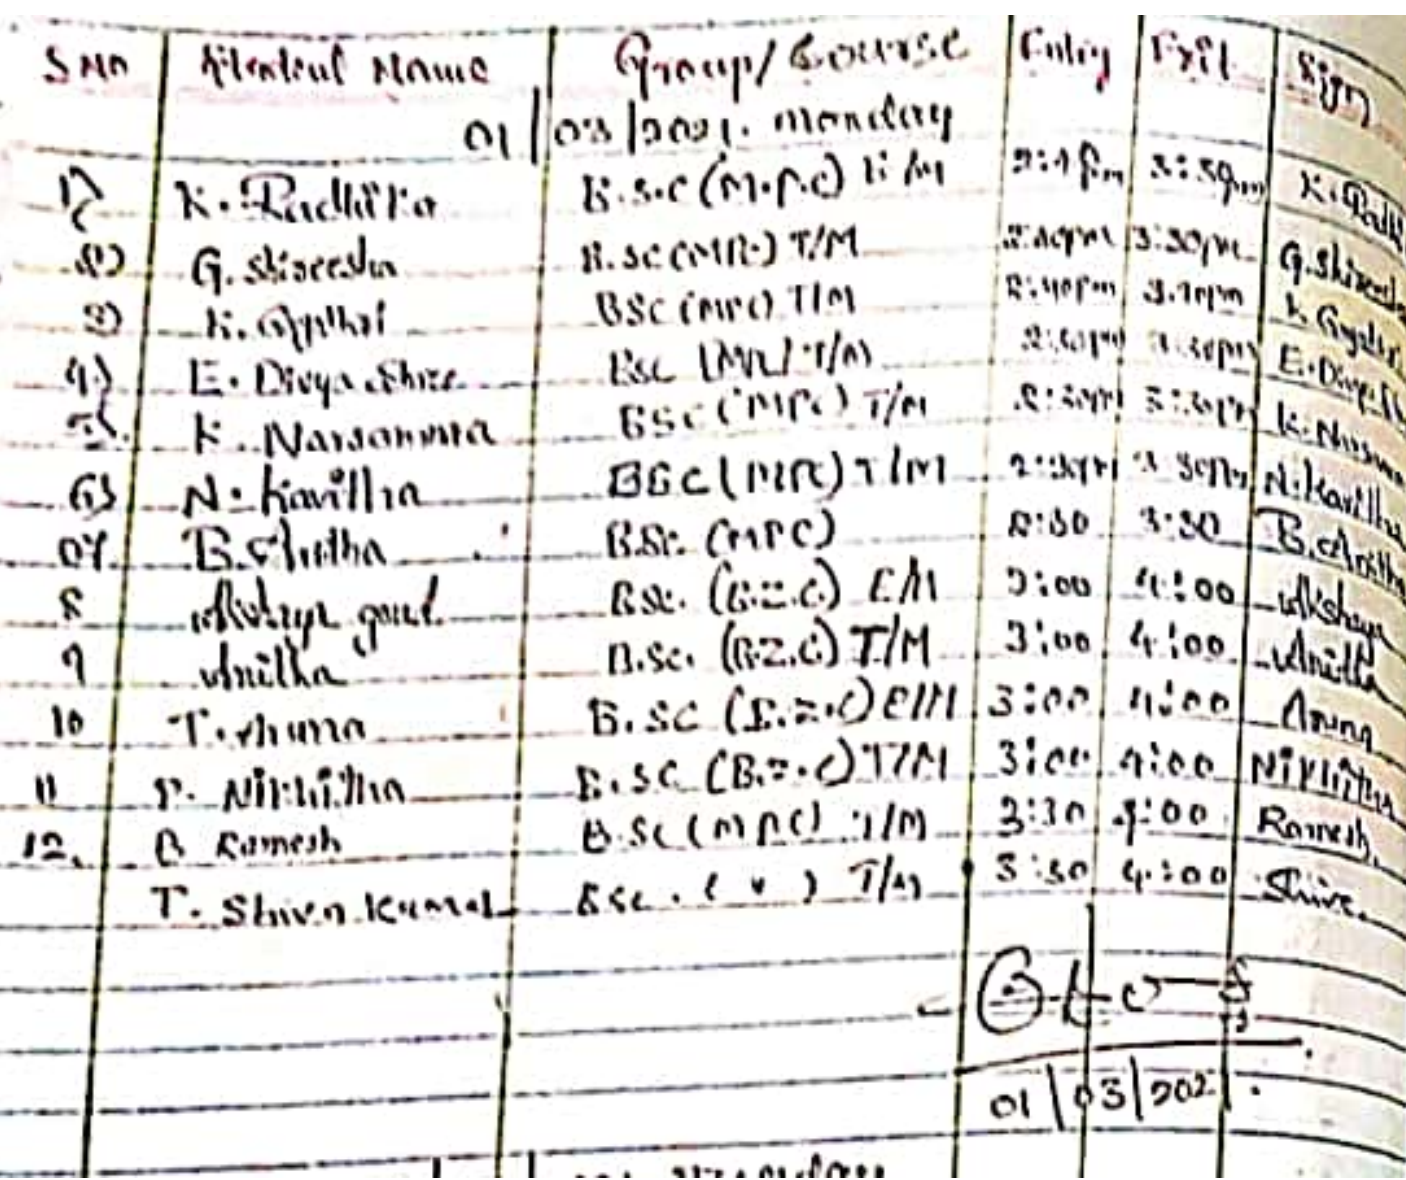 S No Student Name Group/Course Entry Exit Sign
01/03/2021. monday
1) K. Radhika B.S.C (M.P.C) E/M 3:30pm K. Radhi
2) G. Shireesha B.SC (MPC) T/M 2:40pm 3:30pm G. Shireesha
3) K. BSC (MPC) T/M 2:40pm K.
4) E. Divya Shree BSC (MPC) T/M E. Divya
5. K. Narsamma BSC (MPC) T/M 2:30pm 3:30pm K. Narsamma
6) N. Kavitha BSC (MPC) T/M 2:30pm 3:30pm N. Kavitha
07. B. B.Sc. (MPC) 2:30 3:30 B.
8 Akshaya goud B.Sc. (B.Z.C) E/M 3:00 4:00 Akshaya
9 Anitha B.Sc. (B.Z.C) T/M 3:00 4:00 Anitha
10 T. Aruna B.SC (B.Z.C) E/M 3:00 4:00 Aruna
11 P. Nikhitha B.SC (B.Z.C) T/M 3:00 4:00 Nikhitha
12. B Ramesh B.SC (MPC) T/M 3:30 4:00 Ramesh.
T. Shiva Kumar BSC. ( " ) T/M 3:30 4:00 Shiva.
01/03/2021.